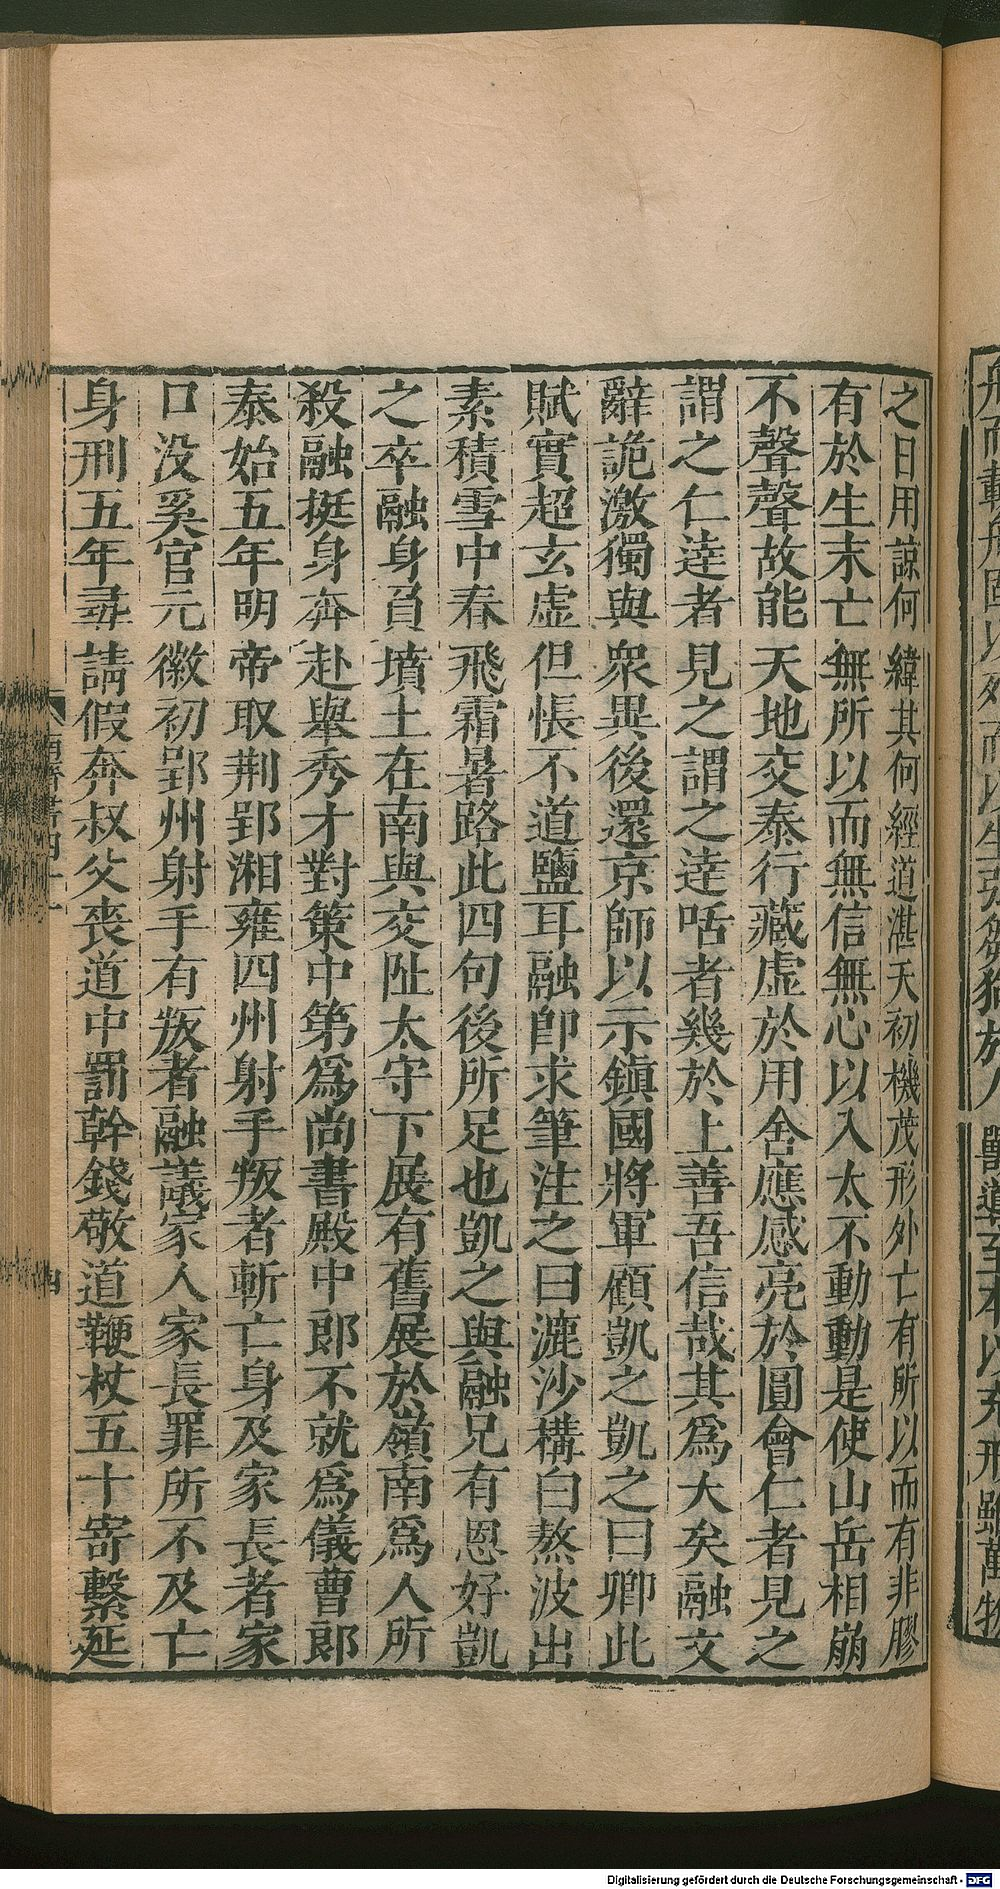 之日用諒何緯其何經道湛天初機茂形外亡有所以而有非膠
有於生末亡無所以而無信無心以入太不動動是使山岳相崩
不聲聲故能天地交泰行藏虛於用舍應感亮於圓會仁者見之
謂之仁逹者見之謂之逹咶者幾於上善吾信哉其爲大矣融文
辭詭激獨與衆異後還京師以示鎭國將軍顧凱之凱之曰卿此
賦實超玄虛但恨不道鹽耳融卽求筆注之曰漉沙構白熬波出
素積雪中春飛霜暑路此四句後所足也凱之與融兄有恩好凱
之卒融身負墳土在南與交阯太守卞展有舊展於嶺南爲人所
殺融挺身奔赴舉秀才對策中第爲尚書殿中郎不就爲儀曹郎
泰始五年明帝取荆郢湘雍四州射手叛者斬亡身及家長者家
口没奚官元徽初郢州射手有叛者融議家人家長罪所不及亡
身刑五年尋請假奔叔父喪道中罰幹錢敬道鞭杖五十寄繫延
四
Digitalisierung gefördert durch die Deutsche Forschungsgemeinschaft - DFG